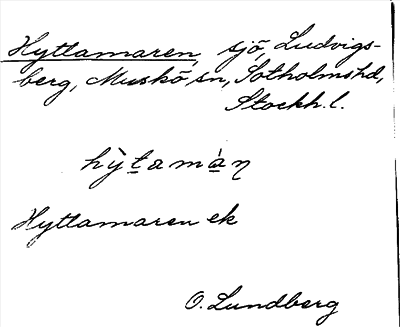 Hyttamaren, sjö, Ludvigs-
berg, Muskö sn, Sotholms hd,
Stockh. l.
hỳtamàn
Hyttamaren ek
O. Lundberg